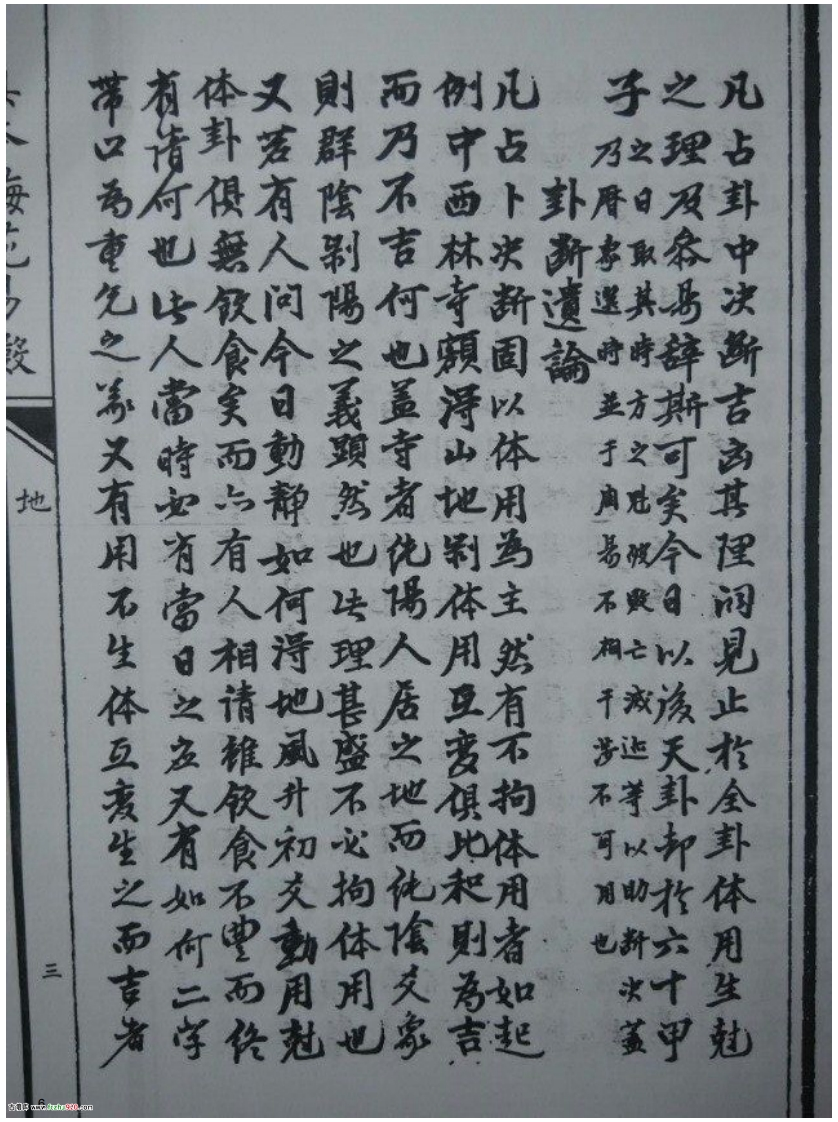 凡占卦中决断吉凶其理洞见止於全卦体用生尅
之理及叅易辞斯可矣今日以後天卦却於六十甲
子之日取其時方之尅破敗亡滅迹等以助断决蓋
乃暦家選時並于周易不相干涉不可用也
卦断遺論
凡占卜决断固以体用為主然有不拘体用者如起
例中西林寺額淂山地剝体用互変俱比和則為吉
而乃不吉何也盖寺者纯陽人居之地而纯陰爻象
則群陰剝陽之義顕然也此理甚盛不必拘体用也
又若有人問今日動静如何淂地風升初爻動用尅
体卦俱無飲食矣而亦有人相请雖飲食不豊而终
有请何也此人當時必有當日之应又有如何二字
带口為重兑之义又有用不生体互変生之而吉者
梅花易数
地
三
6
古書庄 www.fozhu920.com